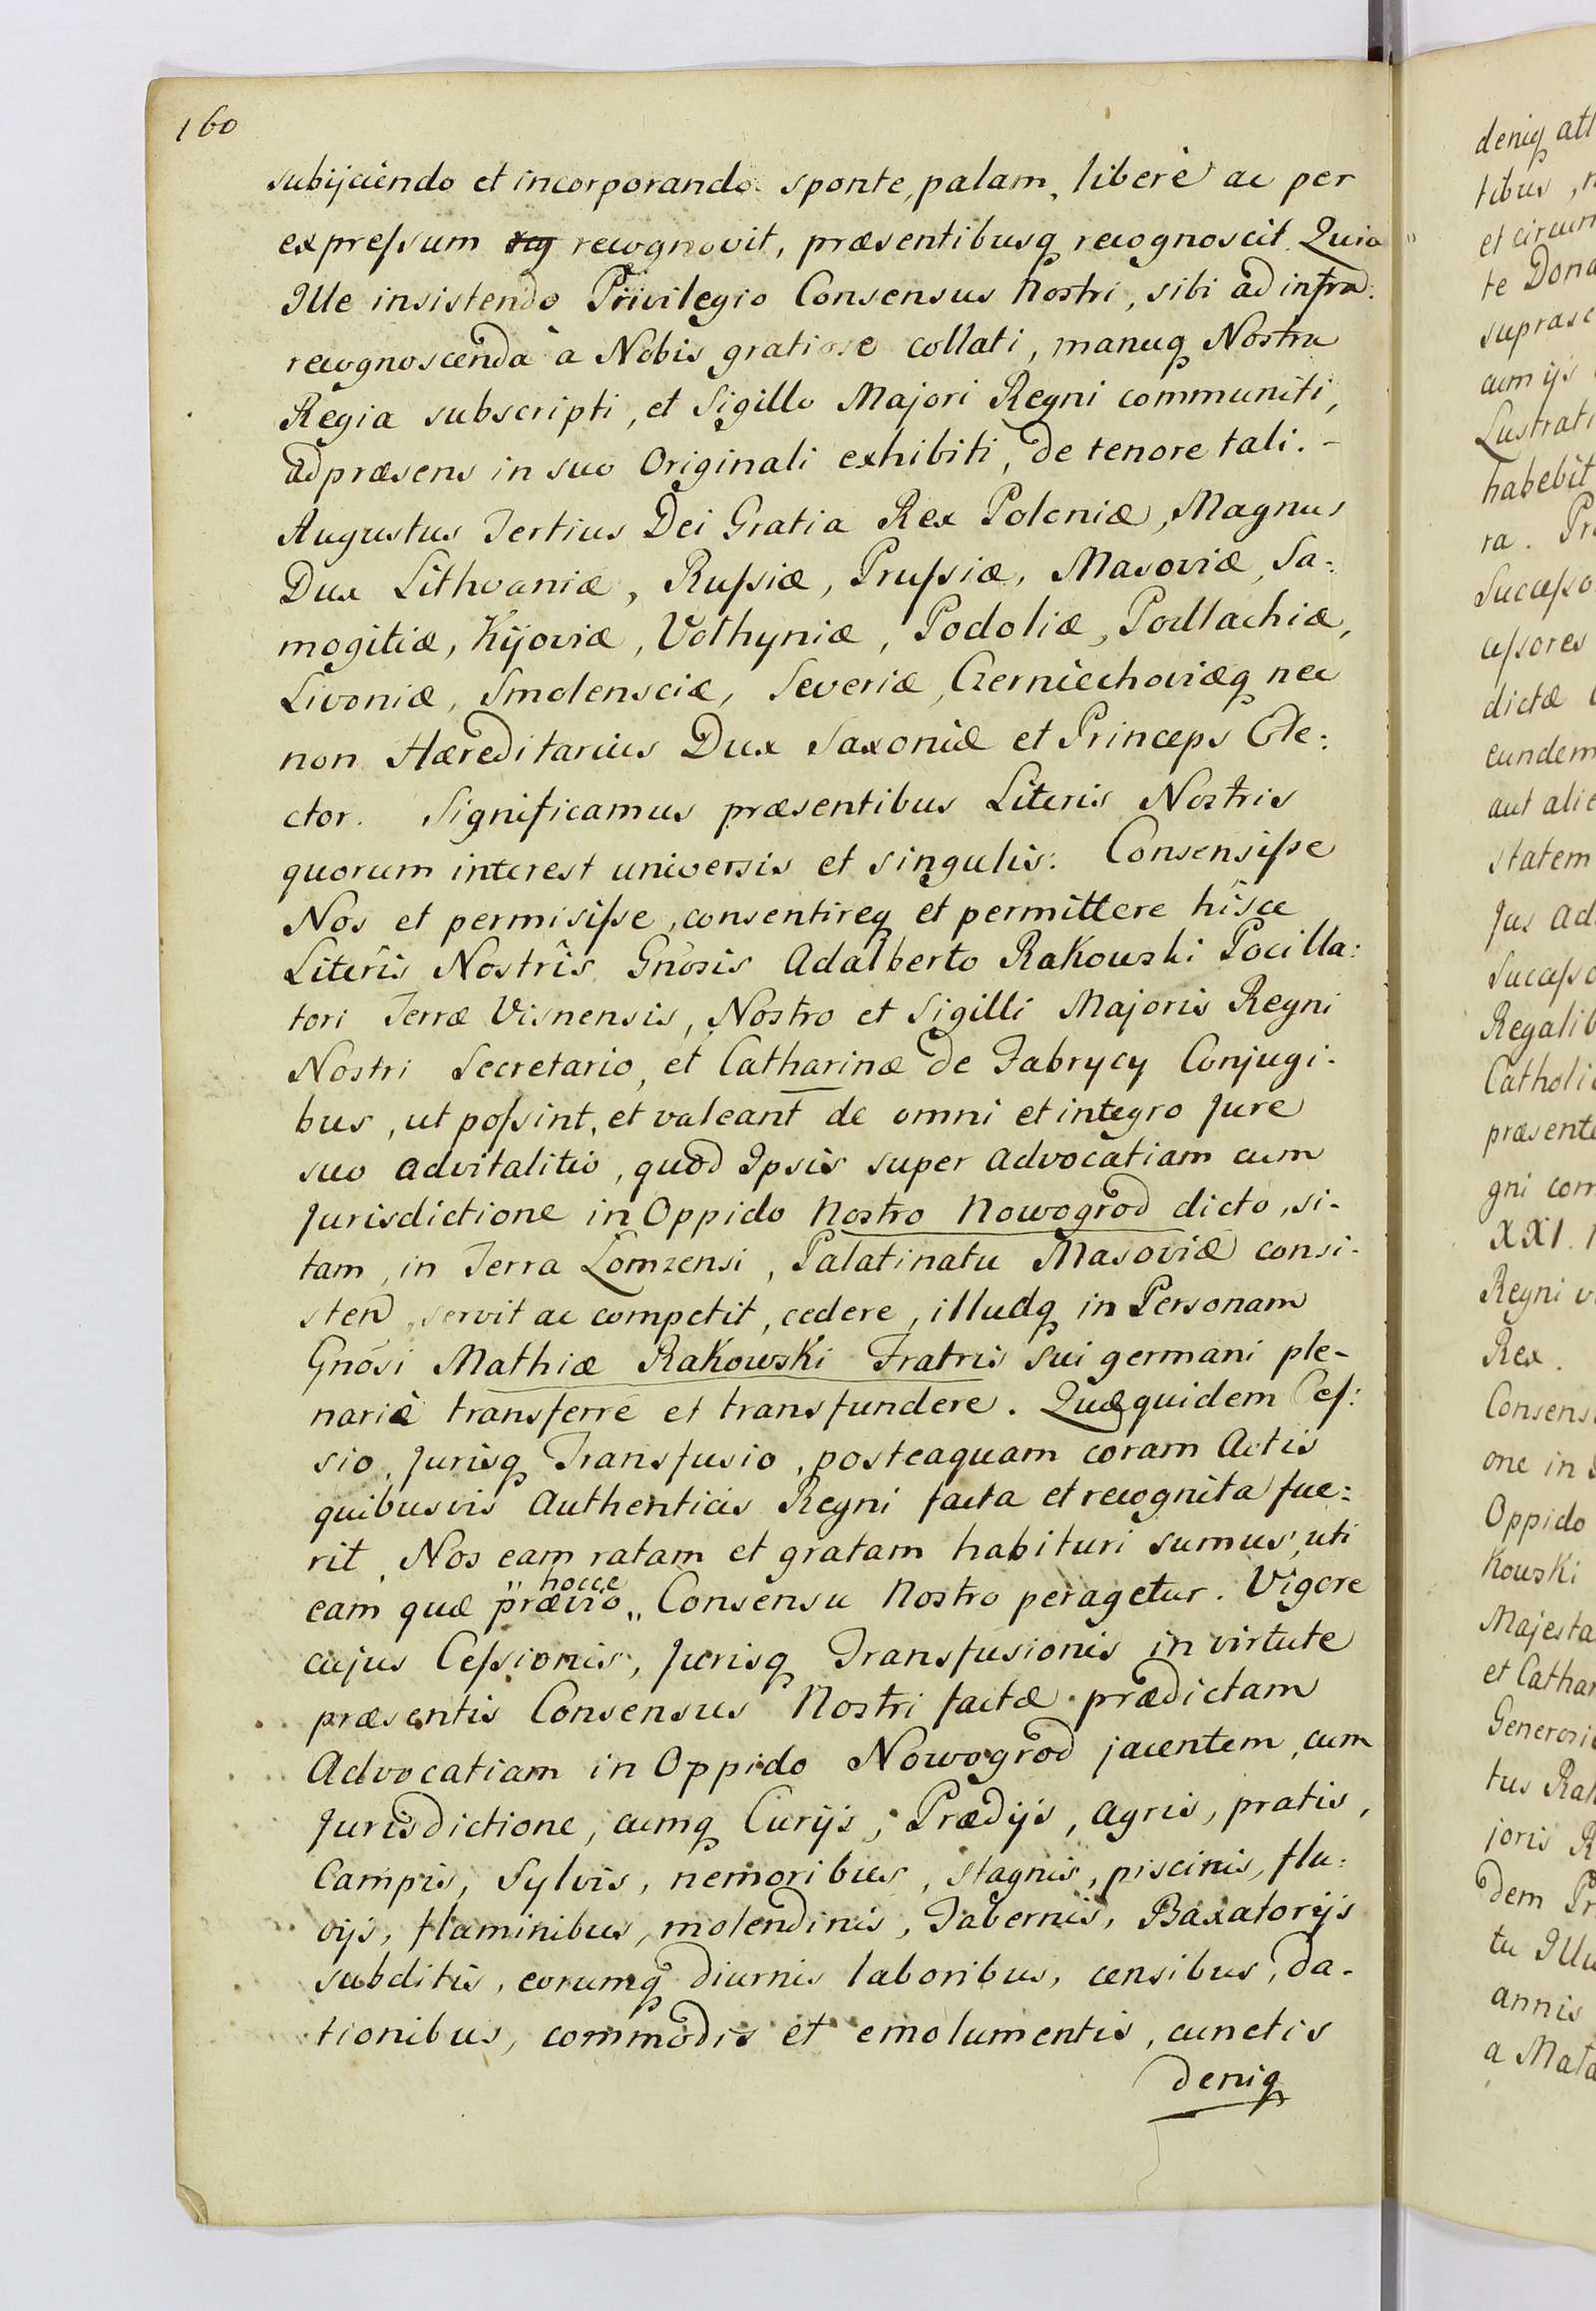 160
subijciendo et incorporando sponte, palam, liberè ac per
expreſsum recognovit, præsentibusq recognoscit. Quia
Ille insistendo Privilegio Consensus Nostri, sibi ad infra:
recognoscenda à Nobis gratiose collati, manuq Nostra
Regia subscripti, et Sigillo Majori Regni communiti,
ad præsens in suo Originali exhibiti, de tenore tali. -
Augustus Tertius Dei Gratia Rex Poloniæ, Magnus
Dux Lithvaniæ, Ruſsiæ, Pruſsiæ, Masoviæ, Sa:
mogitiæ, Kijoviæ, Volhyniæ, Podoliæ, Podlachiæ,
Livoniæ, Smolensciæ, Severiæ, Czerniechoviæq nec
non Hæreditarius Dux Saxoniæ et Princeps Ele:
ctor. Significamus præsentibus Literis Nostris
quorum interest universis et singulis. Consensiſse
Nos et permisiſse, consentireq et permittere hisce
Literis Nostris Gnosis Adalberto Rakowski Pocilla:
tori Terræ Visnensis, Nostro et Sigilli Majoris Regni
Nostri Secretario, et Catharinæ de Fabrycy Conjugi-
bus, ut poſsint, et valeant de omni et integro Jure
suo advitalitio, quod Ipsis super Advocatiam cum
Jurisdictione in Oppido Nostro Nowogrod dicto, si-
tam, in Terra Lomzensi, Palatinatu Masoviæ consi-
sten, servit ac competit, cedere, illudq in Personam
Gnosi Mathiæ Rakowski Fratris sui germani ple-
nariè transferre et transfundere. Quæquidem Ceſ:
sio, Jurisq Transfusio, posteaquam coram Actis
quibusvis Authenticis Regni facta et recognita fue:
rit, Nos eam ratam et gratam habituri sumus, uti
eam quæ prævio „ hocce „ Consensu Nostro peragetur. Vigore
cujus Ceſsionis, Jurisq Transfusionis in virtute
præsentis Consensus Nostri factæ prædictam
Advocatiam in Oppido Nowogrod jacentem, cum
Jurisdictione, cumq Curijs, Prædijs, agris, pratis,
Campis, Sylvis, nemoribus, stagnis, piscinis, flu:
vijs, fluminibus, molendinis, Tabernis, Baxatorijs
subditis, eorumq diurnis laboribus, censibus, da-
tionibus, commodis et emolumentis, cunctis
deniq
deniq att
tibus, n
et circum
te Dona
suprasc
cum ijs
Lustrati
habebit
ra. Pr
Succeſso
ceſsores
dictæ
eundem
aut alie
statem
Jus ad
Succeſso
Regalib
Catholi
præsente
gni com
XXI.
Regni v
Rex.
Consens
one in
Oppido
Kowski
Majesta
et Cathar
Generosi
tus Rak
joris R
dem Pr
tu Illu
annis
a Mata